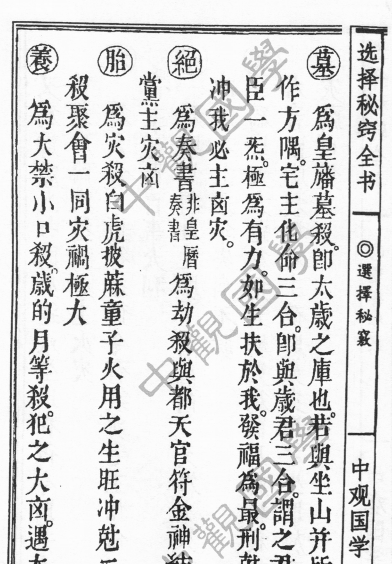 选择秘窍全书
◎選擇秘竅
中观国学
墓 為皇旛墓殺。即太歲之庫也。若與坐山并
作方隅。宅主化命三台。即與歲君三合。謂之
臣一炁。極為有力。如生扶於我。發福為最。刑
冲我必主凶灾。
絕 為奏書非皇曆奏書為劫殺與都天官符金神
黨主灾凶
胎 為灾殺白虎披蔴童子火用之生旺冲尅
殺聚會一同灾禍極大
養 為大禁小口殺歲的月等殺。犯之大凶。遇
中觀國學
中觀國學
中觀國學